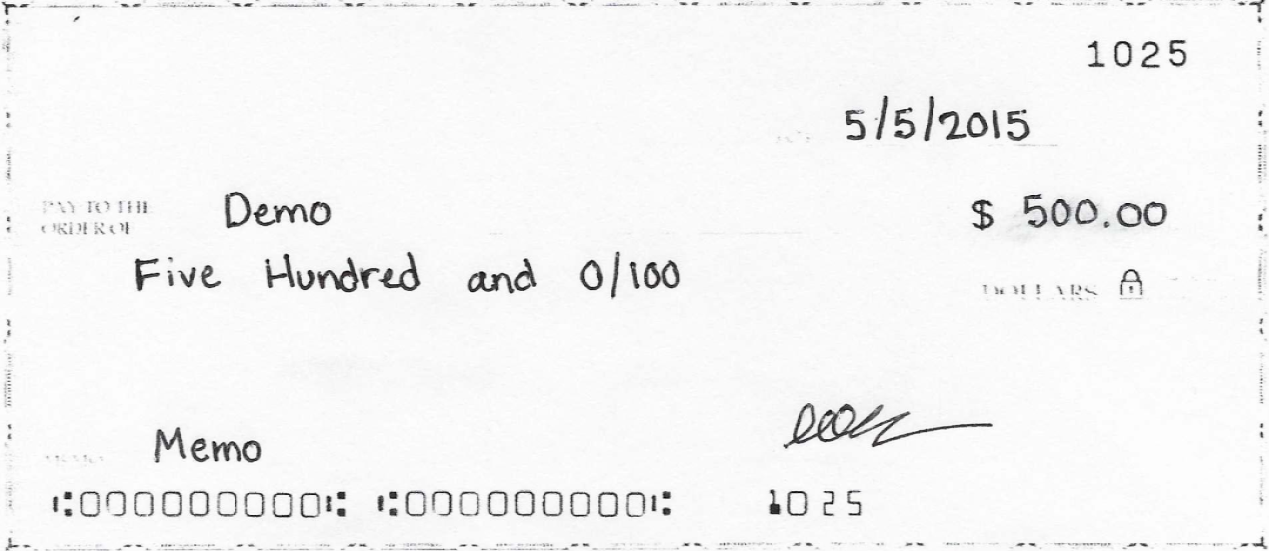 1025
5/5/2015
PAY TO THE
ORDER OF Demo $ 500.00
Five Hundred and 0/100 DOLLARS
MEMO Memo
⑆000000000⑆ ⑆000000000⑆ 1025